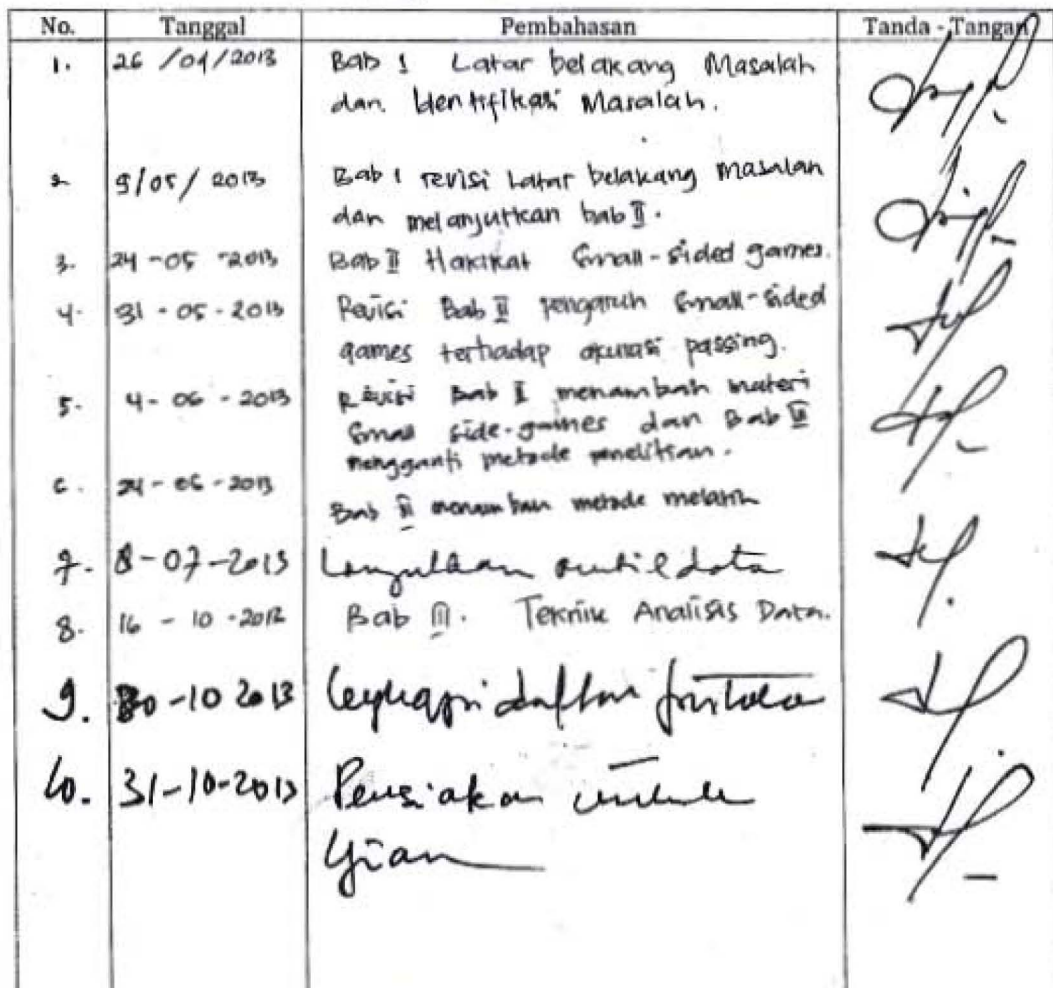 No. Tanggal Pembahasan Tanda - Tangan
1. 26 /04/2013 Bab 1 Latar belakang Masalah
dan Identifikasi Masalah.
2. 9/05/ 2013 Bab 1 revisi Latar belakang masalah
dan melanjutkan bab II.
3. 24 -05 -2013 Bab II Hakikat Small-sided games.
4. 31 - 05 - 2013 Revisi Bab II pengaruh small-sided
games terhadap akurasi passing.
5. 4- 06 - 2013 Revisi Bab II menambah materi
Small side-games dan Bab III
mengganti metode penelitian.
6. 24 - 06 - 2013
Bab III menambah metode melatih
7. 8-07-2013 Lanjutkan ambil data
8. 16 - 10 -2013 Bab III. Teknik Analisis Data.
9. 30 -10 2013 lengkapi daftar pustaka
10. 31-10-2013 Persiapan untuk
Ujian